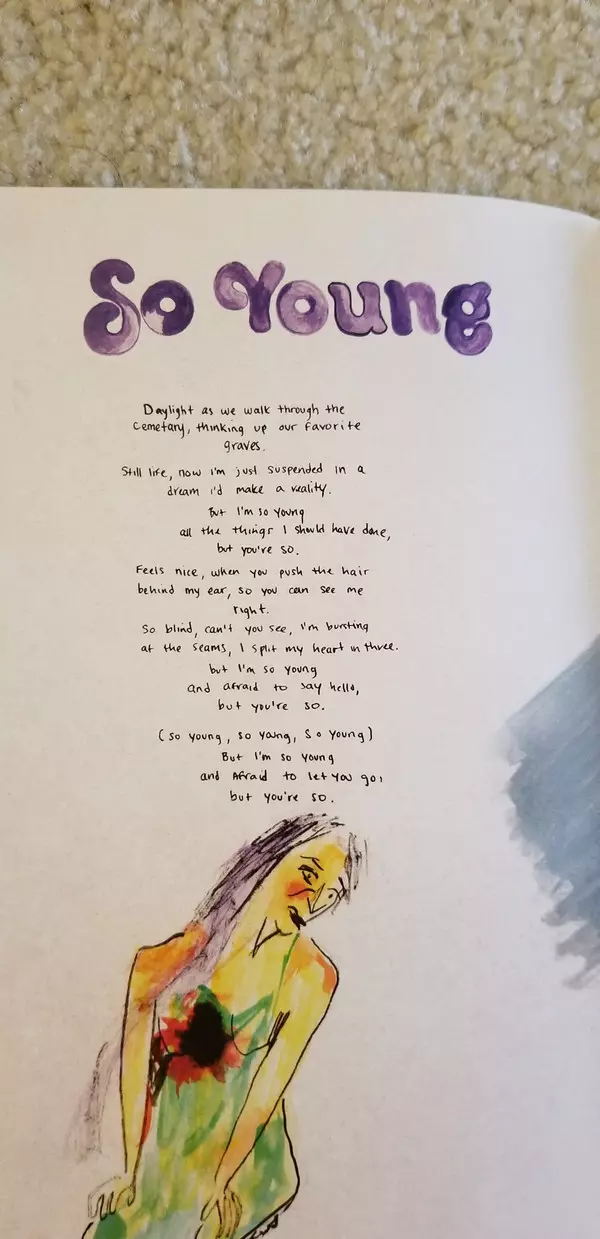 So Young
Daylight as we walk through the
Cemetary, thinking up our favorite
graves.
Still life, now i'm just suspended in a
dream i'd make a reality.
But I'm so young
all the things I should have done,
but you're so.
Feels nice, when you push the hair
behind my ear, so you can see me
right.
So blind, can't you see, i'm bursting
at the seams, I split my heart in three.
but I'm so young
and afraid to say hello,
but you're so.
(so young, so young, so young)
But I'm so young
and Afraid to let you go,
but you're so.